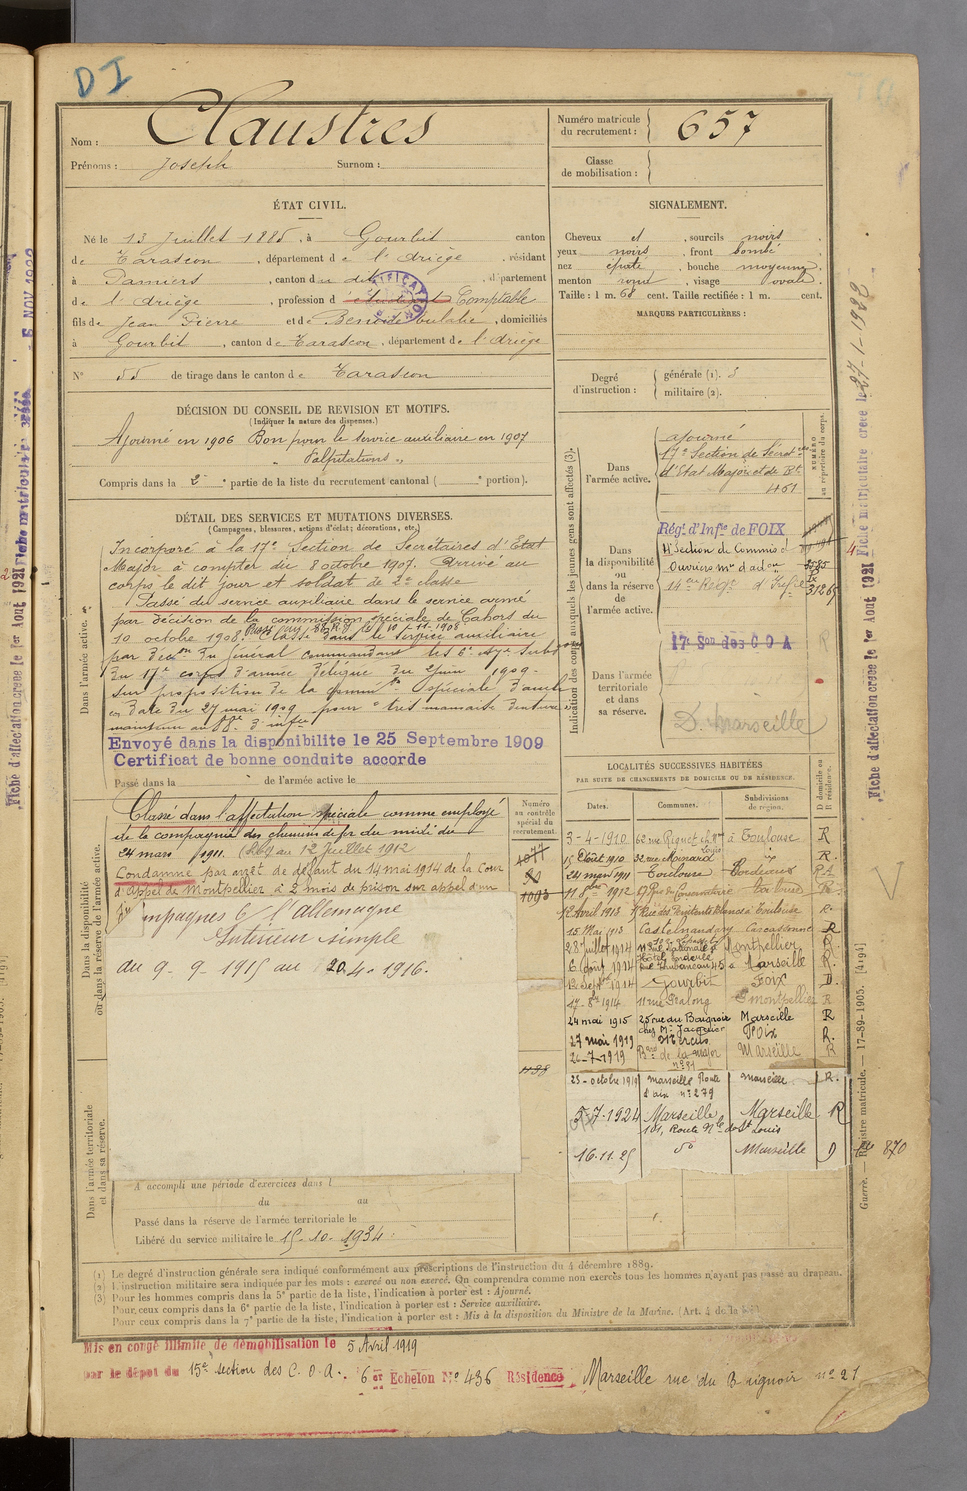 DI
Nom : Claustres
Prénoms : Joseph Surnom :
Numéro matricule du recrutement : 657
Classe de mobilisation :
ÉTAT CIVIL.
Né le 13 Juillet 1885, à Gourbit canton
de Tarascon, département de l'Ariège, résidant
à Pamiers, canton du dit, département
de l'Ariège, profession d étudiant Comptable
fils de Jean Pierre et de Benoide Eulalie, domiciliés
à Gourbit, canton de Tarascon, département de l'Ariège
N° 55 de tirage dans le canton de Tarascon
SIGNALEMENT.
Cheveux et, sourcils noirs
yeux noirs, front bombé
nez épaté, bouche moyenne,
menton rond, visage ovale.
Taille : 1 m. 68 cent. Taille rectifiée : 1 m. cent.
MARQUES PARTICULIÈRES :
Degré d'instruction : générale (1). 3
militaire (2).
DÉCISION DU CONSEIL DE REVISION ET MOTIFS.
(Indiquer la nature des dispenses.)
Ajourné en 1906 Bon pour le service auxiliaire en 1907
"Palpitations"
Compris dans la 2e partie de la liste du recrutement cantonal ( portion).
DÉTAIL DES SERVICES ET MUTATIONS DIVERSES.
(Campagnes, blessures, actions d'éclat ; décorations, etc.)
Dans l'armée active.
Incorporé à la 17e Section de Secrétaires d'Etat
Major à compter du 8 octobre 1907. Arrivé au
corps le dit jour et soldat de 2e classe
Passé du service auxiliaire dans le service armé
par décision de la commission spéciale de Cahors du
10 octobre 1908. le 10-11-1908
Classé dans le service auxiliaire
par décon du Général commandant les 6e
du 17e corps d'armée délégué du 2 juin 1909.
sur proposition de la comm spéciale
en date du 27 mai 1909 pour très mauvaise denture
maintenu au
Envoyé dans la disponibilite le 25 Septembre 1909
Certificat de bonne conduite accorde
Passé dans la de l'armée active le
Indication des corps auxquels les jeunes gens sont affectés (3).
NUMÉRO au répertoire du corps.
Dans l'armée active.
ajourné
17e Section de Secrétres
d'Etat Major et de Rt
461
Dans la disponibilité ou dans la réserve de l'armée active.
Régt d'Infie de FOIX
4e Section de Commis et
Ouvriers mres d'adon
14 Régt d'Infie
Dans l'armée territoriale et dans sa réserve.
17e Son des C O A
D. Marseille
Dans la disponibilité ou dans la réserve de l'armée active.
Classé dans l'affectation spéciale comme employé
de la compagnie des chemins de fer du midi du
24 mars 1911. (Rayé au 12 Juillet 1912
Condamné par arrêt de défaut du 14 mai 1914 de la Cour
d'appel de Montpellier à 2 mois de prison sur appel d'un
Numéro au contrôle spécial du recrutement.
1077
1093
Campagnes C/ l'allemagne
Intérieur simple
du 9-9-1915 au 20-4-1916.
LOCALITÉS SUCCESSIVES HABITÉES
PAR SUITE DE CHANGEMENTS DE DOMICILE OU DE RÉSIDENCE.
Dates. Communes. Subdivisions de région. D domicile ou R résidence.
3-4-1910 62 rue Riquet à Toulouse R
15 Août 1910 32 rue Mainard R.
24 mars 1911 Toulouse Bordeaux RA
11 8bre 1912 Rue du Conservatoire Toulouse R
12 Avril 1913 Rue des Penitents Blancs à Toulouse R.
15 Mai 1913 Castelnaudary Carcassonne R
28 juillet 1914 Montpellier R.
6 Août 1914 45 à Marseille R.
12 Septbre 1914 Gourbit Foix D.
17-8bre 1914 11 rue Montpellier R
24 mai 1915 25 rue du Baignoir Marseille R
chez Mr Jacquier
27 mai 1919 Mercus Foix R.
26-7-1919 Bard de la major Marseille R
n° 81
23-octobre 1919 marseille Route marseille R.
d'aix n° 279
5-7-1924 Marseille Marseille R
101, Route Nle de St Louis
16.11.25 do Marseille D
Dans l'armée territoriale et dans sa réserve.
A accompli une période d'exercices dans l
du au
Passé dans la réserve de l'armée territoriale le
Libéré du service militaire le 15-10-1934.
(1) Le degré d'instruction générale sera indiqué conformément aux prescriptions de l'instruction du 4 décembre 1889.
(2) L'instruction militaire sera indiquée par les mots : exercé ou non exercé. On comprendra comme non exercés tous les hommes n'ayant pas passé au drapeau.
(3) Pour les hommes compris dans la 5e partie de la liste, l'indication à porter est : Ajourné.
Pour ceux compris dans la 6e partie de la liste, l'indication à porter est : Service auxiliaire.
Pour ceux compris dans la 7e partie de la liste, l'indication à porter est : Mis à la disposition du Ministre de la Marine. (Art. 4 de la loi.)
Mis en congé illimité de démobilisation le 5 Avril 1919
par le dépôt du 15e section des C.O.A. 6 er Echelon N° 436 Résidence Marseille rue du Baignoir n° 21
Fiche matriculaire créée le 27-1-1922
Fiche d'affectation creee le 1er Aout 1921
Guerre. — Registre matricule. — 17-89-1905. [4194]
870